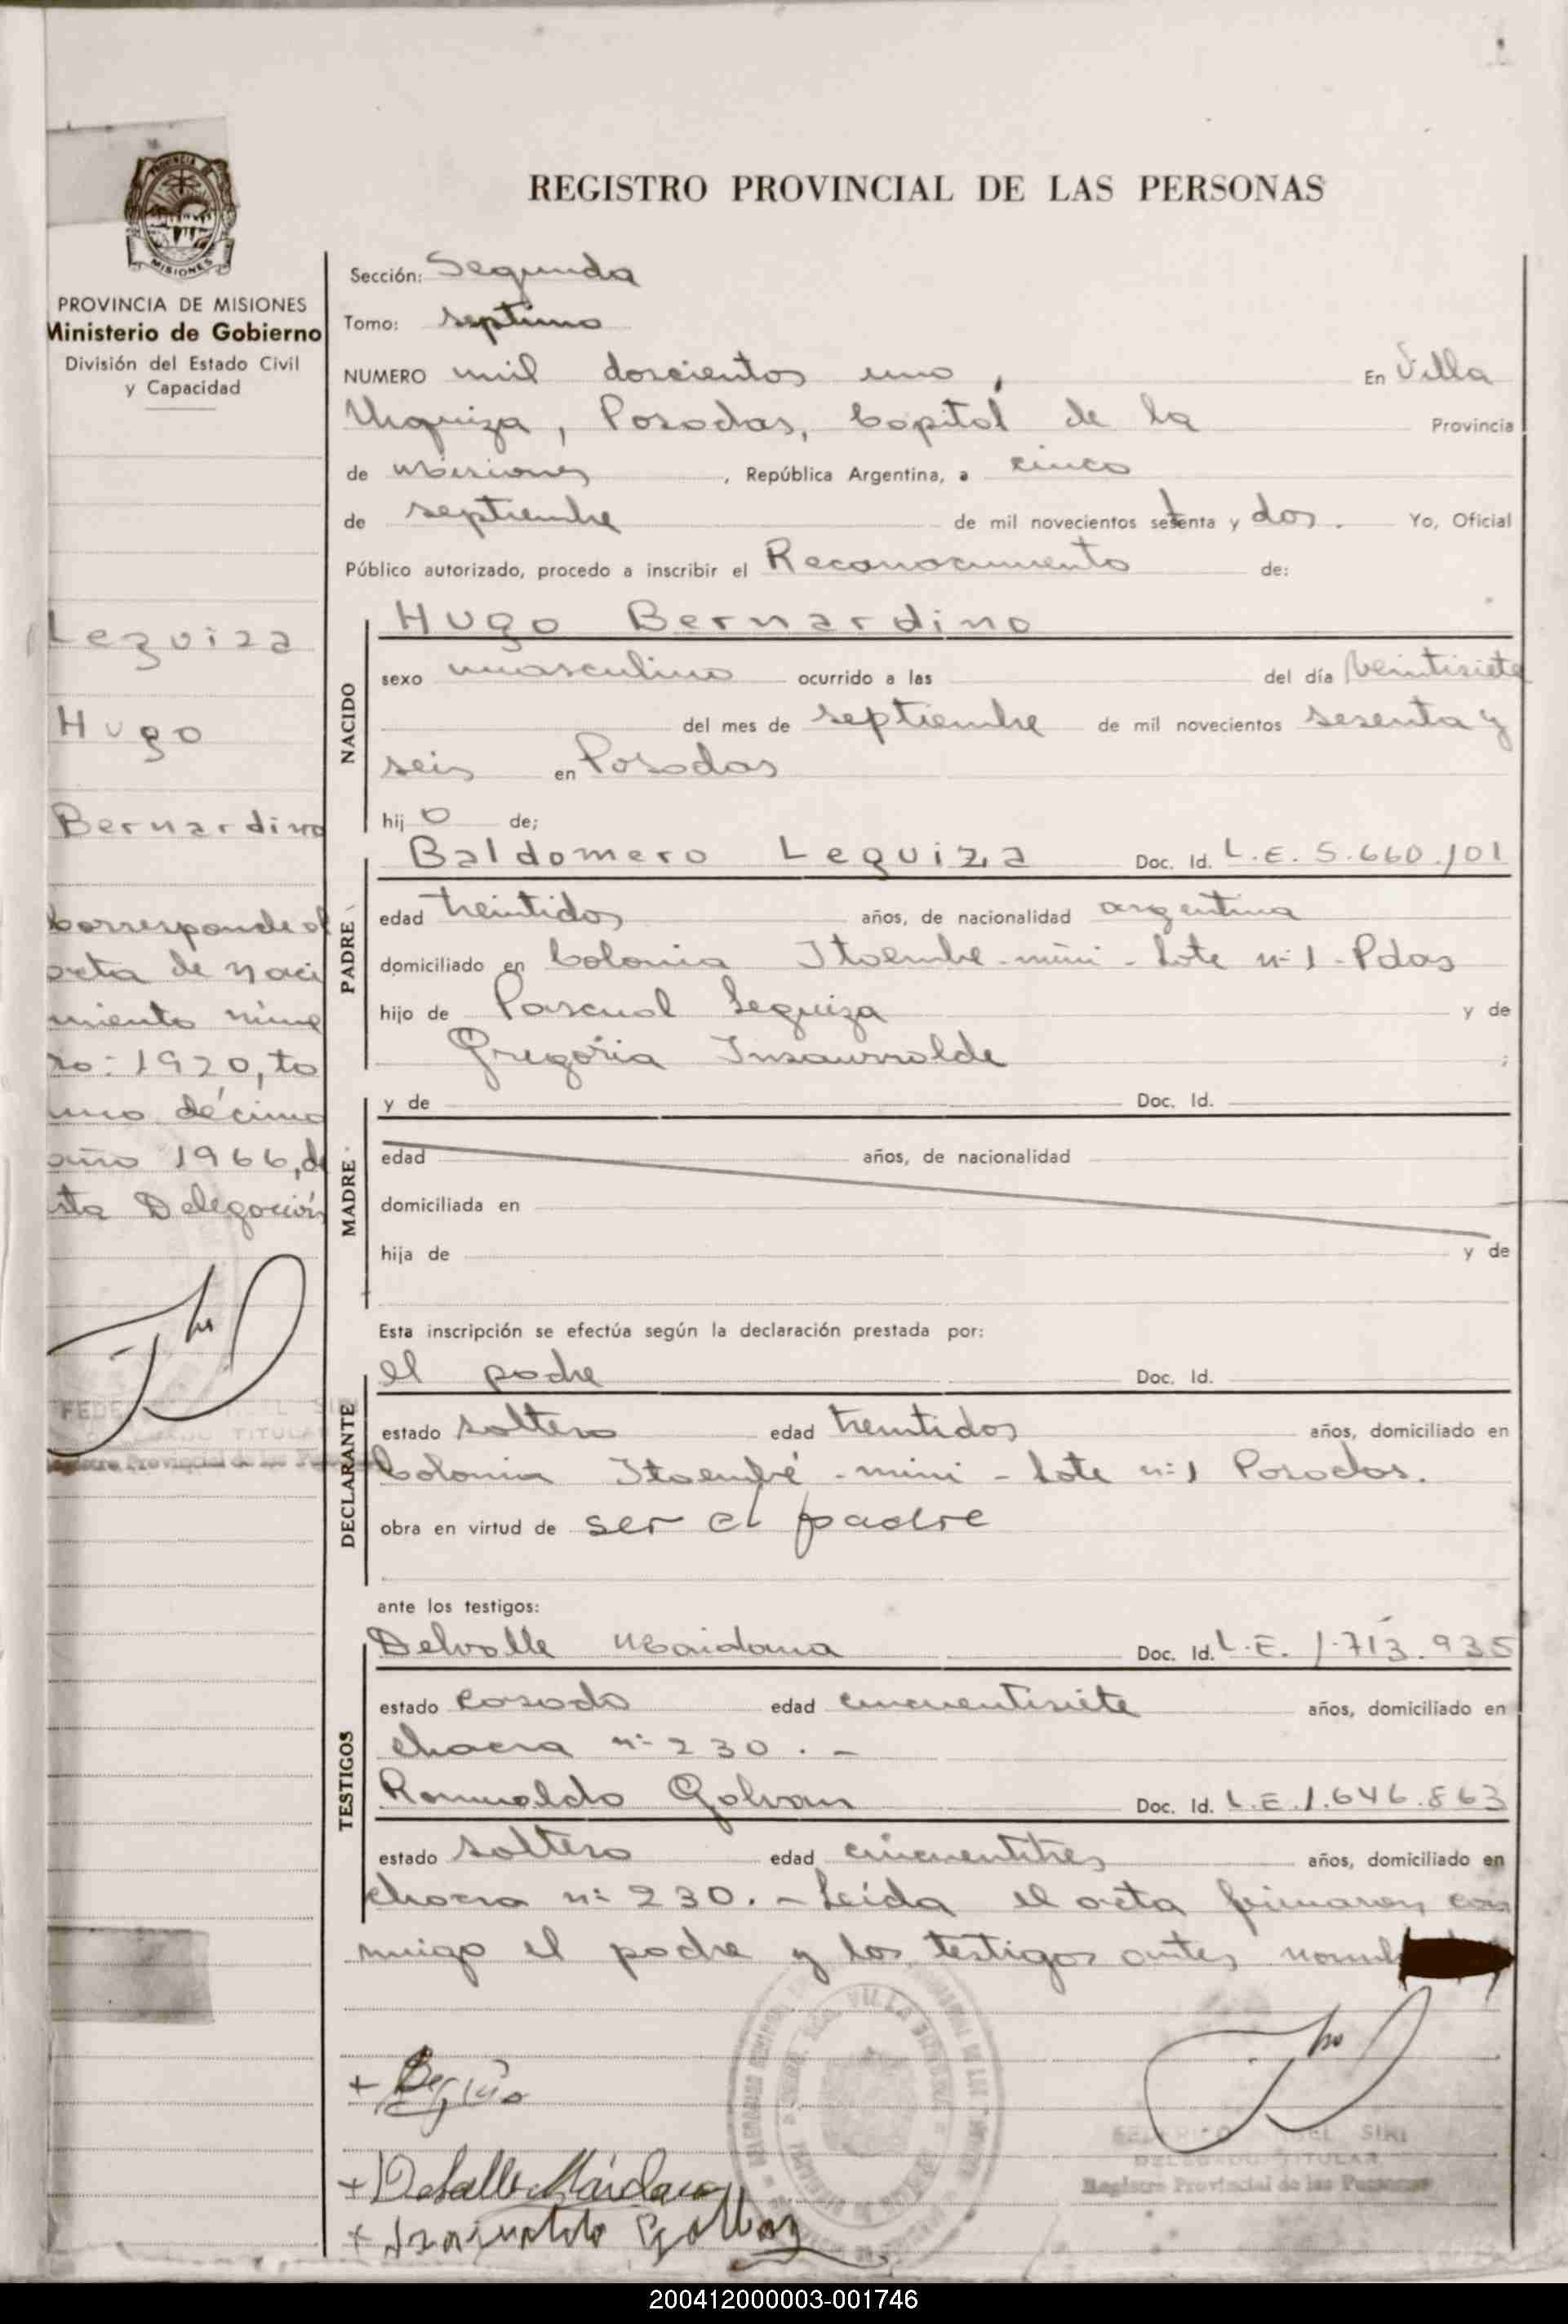 PROVINCIA DE MISIONES
MISIONES
PROVINCIA DE MISIONES
Ministerio de Gobierno
División del Estado Civil
y Capacidad
Leguiza
Hugo
Bernardino
Corresponde al
acta de naci
miento núme
ro: 1920, to
mo décimo
año 1966, de
sta Delegación
REGISTRO PROVINCIAL DE LAS PERSONAS
Sección: Segunda
Tomo: septimo
NUMERO mil doscientos uno, En Villa
Urquiza, Posadas, Capital de la Provincia
de Misiones, República Argentina, a cinco
de septiembre de mil novecientos setenta y dos. Yo, Oficial
Público autorizado, procedo a inscribir el Reconocimiento de:
NACIDO
Hugo Bernardino
sexo masculino ocurrido a las del día veintisiete
del mes de septiembre de mil novecientos sesenta y
seis en Posadas
hijo de;
PADRE
Baldomero Leguiza Doc. Id. L.E. 5.660.101
edad treintidos años, de nacionalidad argentina
domiciliado en Colonia Itaembe-mini-Lote nº 1-Pdas
hijo de Pascual Leguiza y de
Gregoria Insaurralde ;
MADRE
y de Doc. Id.
edad años, de nacionalidad
domiciliada en
hija de y de
Esta inscripción se efectúa según la declaración prestada por:
DECLARANTE
el padre Doc. Id.
estado soltero edad treintidos años, domiciliado en
Colonia Itaembé-mini-Lote nº 1 Posadas.
obra en virtud de ser el padre
ante los testigos:
TESTIGOS
Delvalle Maidana Doc. Id. L.E. 1.713.935
estado casado edad cincuentisiete años, domiciliado en
chacra nº 230.-
Romualdo Galvan Doc. Id. L.E. 1.646.863
estado soltero edad cincuentitres años, domiciliado en
chacra nº 230.-Leída el acta firmaron con
migo el padre y los testigos antes
+ Delvalle Maidana
+ Romualdo Galvan
SIRI
DELEGADO TITULAR
Registro Provincial de las Personas
200412000003-001746